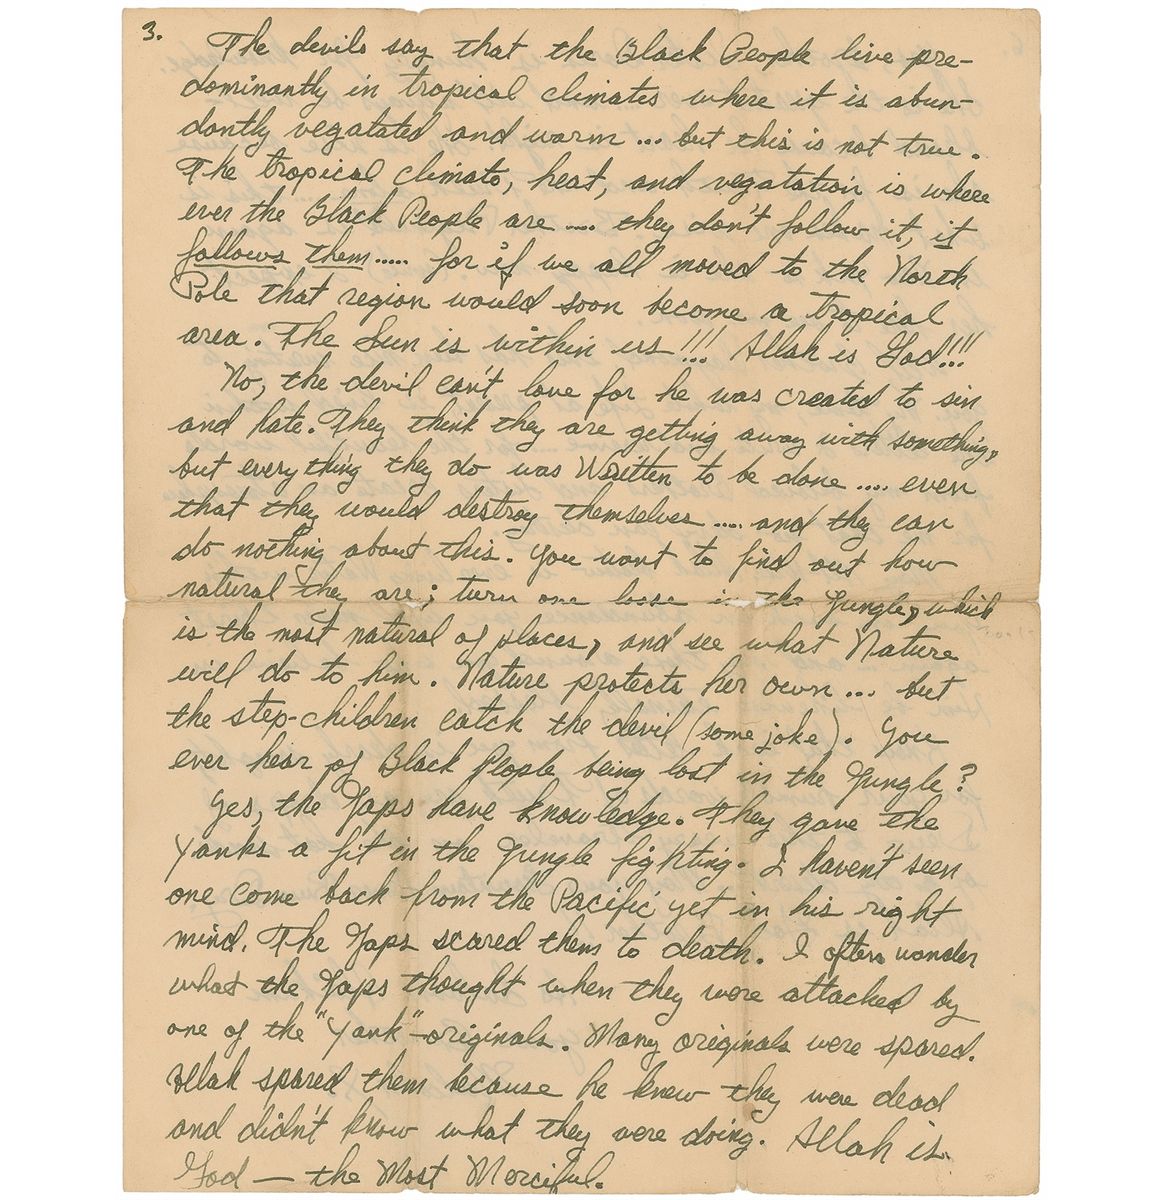 3.
The devils say that the Black People live pre-
dominantly in tropical climates where it is abun-
dantly vegatated and warm ... but this is not true.
The tropical climate, heat, and vegatation is where
ever the Black People are .... they don't follow it, it
follows them..... for if we all moved to the North
Pole that region would soon become a tropical
area. The Sun is within us!!! Allah is God!!!
No, the devil can't love for he was created to sin
and hate. They think they are getting away with something,
but everything they do was Written to be done .... even
that they would destroy themselves .... and they can
do nothing about this. You want to find out how
natural they are; turn one loose in the Jungle, which
is the most natural of places, and see what Nature
will do to him. Nature protects her own ... but
the step-children catch the devil (some joke). You
ever hear of Black People being lost in the Jungle?
Yes, the Japs have knowledge. They gave the
Yanks a fit in the Jungle fighting. I haven't seen
one come back from the Pacific yet in his right
mind. The Japs scared them to death. I often wonder
what the Japs thought when they were attacked by
one of the "Yank"-originals. Many originals were spared.
Allah spared them because he knew they were dead
and didn't know what they were doing. Allah is
God — the Most Merciful.